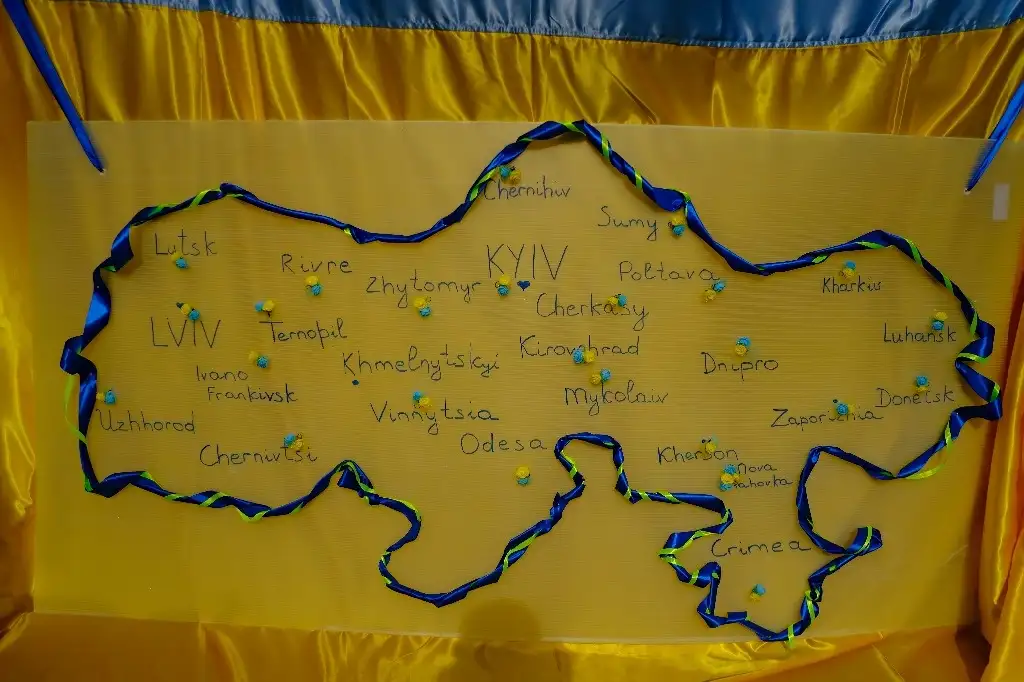 Chernihiv
Sumy
Lutsk
Rivre
KYIV
Zhytomyr
Poltava
Kharkiv
Cherkasy
LVIV
Ternopil
Luhansk
Kirovohrad
Khmelnytskyi
Dnipro
Ivano
Frankivsk
Mykolaiv
Donetsk
Uzhhorod
Vinnytsia
Zaporizhia
Odesa
Chernivtsi
Kherson
Nova
Kahovka
Crimea